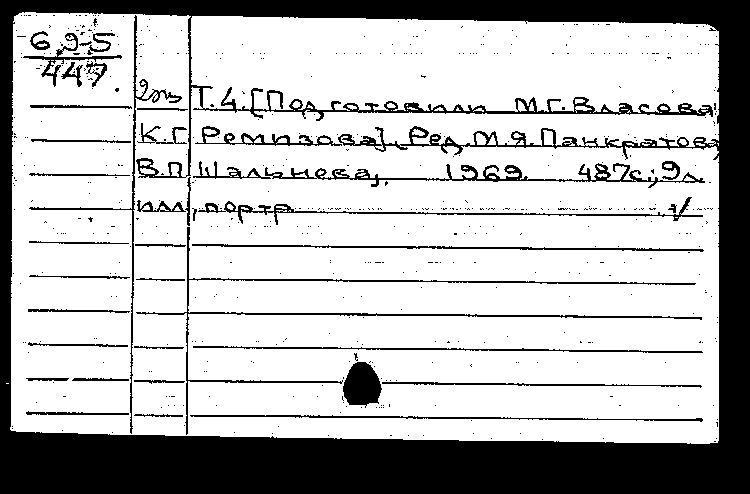 6,9-5
447.
2экз Т.4.[Подготовили М.Г.Власова
К.Г. Ремизова]. Ред. М.Я.Панкратова,
В.П. Шальнева,. 1969. 487с.; 9л.
илл, портр. √